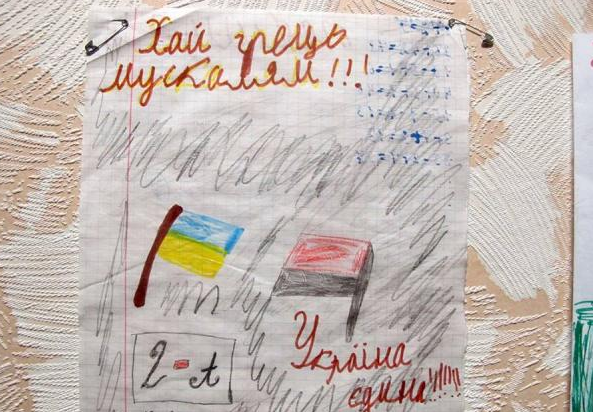 Хай грець
мускалям!!!
2-А
Україна
єдина!!!!!!